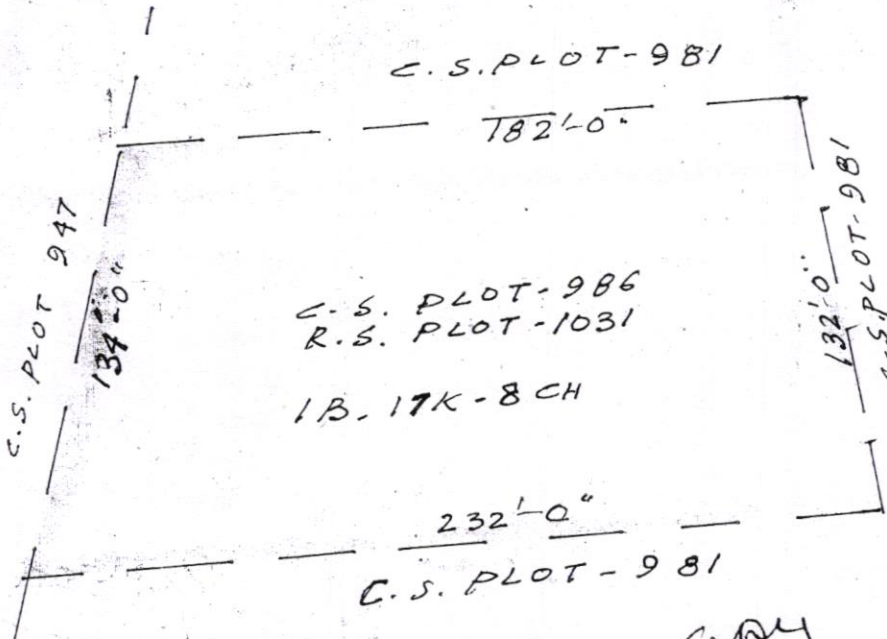 C.S. PLOT-981
182'-0"
C.S. PLOT 947
134'-0"
C.S. PLOT-986
R.S. PLOT-1031
1B. 17K-8 CH
132'-0"
C.S. PLOT-981
232'-0"
C.S. PLOT-981